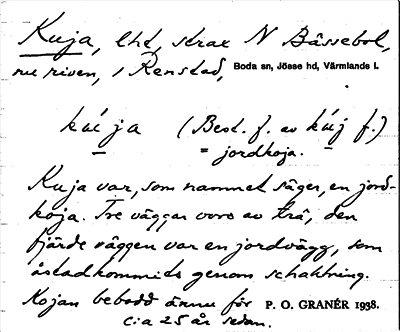 Kuja, lht, strax N Båssebol,
nu riven, i Renstad, Boda sn, Jösse hd, Värmlands l.
kúja (Best. f. av kúj f.)
= jordkoja.
Kuja var, som namnet säger, en jord-
koja. Tre väggar voro av trä, den
fjärde väggen var en jordvägg, som
åstadkommits genom schaktning.
Kojan bebodd ännu för P. O. GRANÉR 1938.
c:a 25 år sedan.